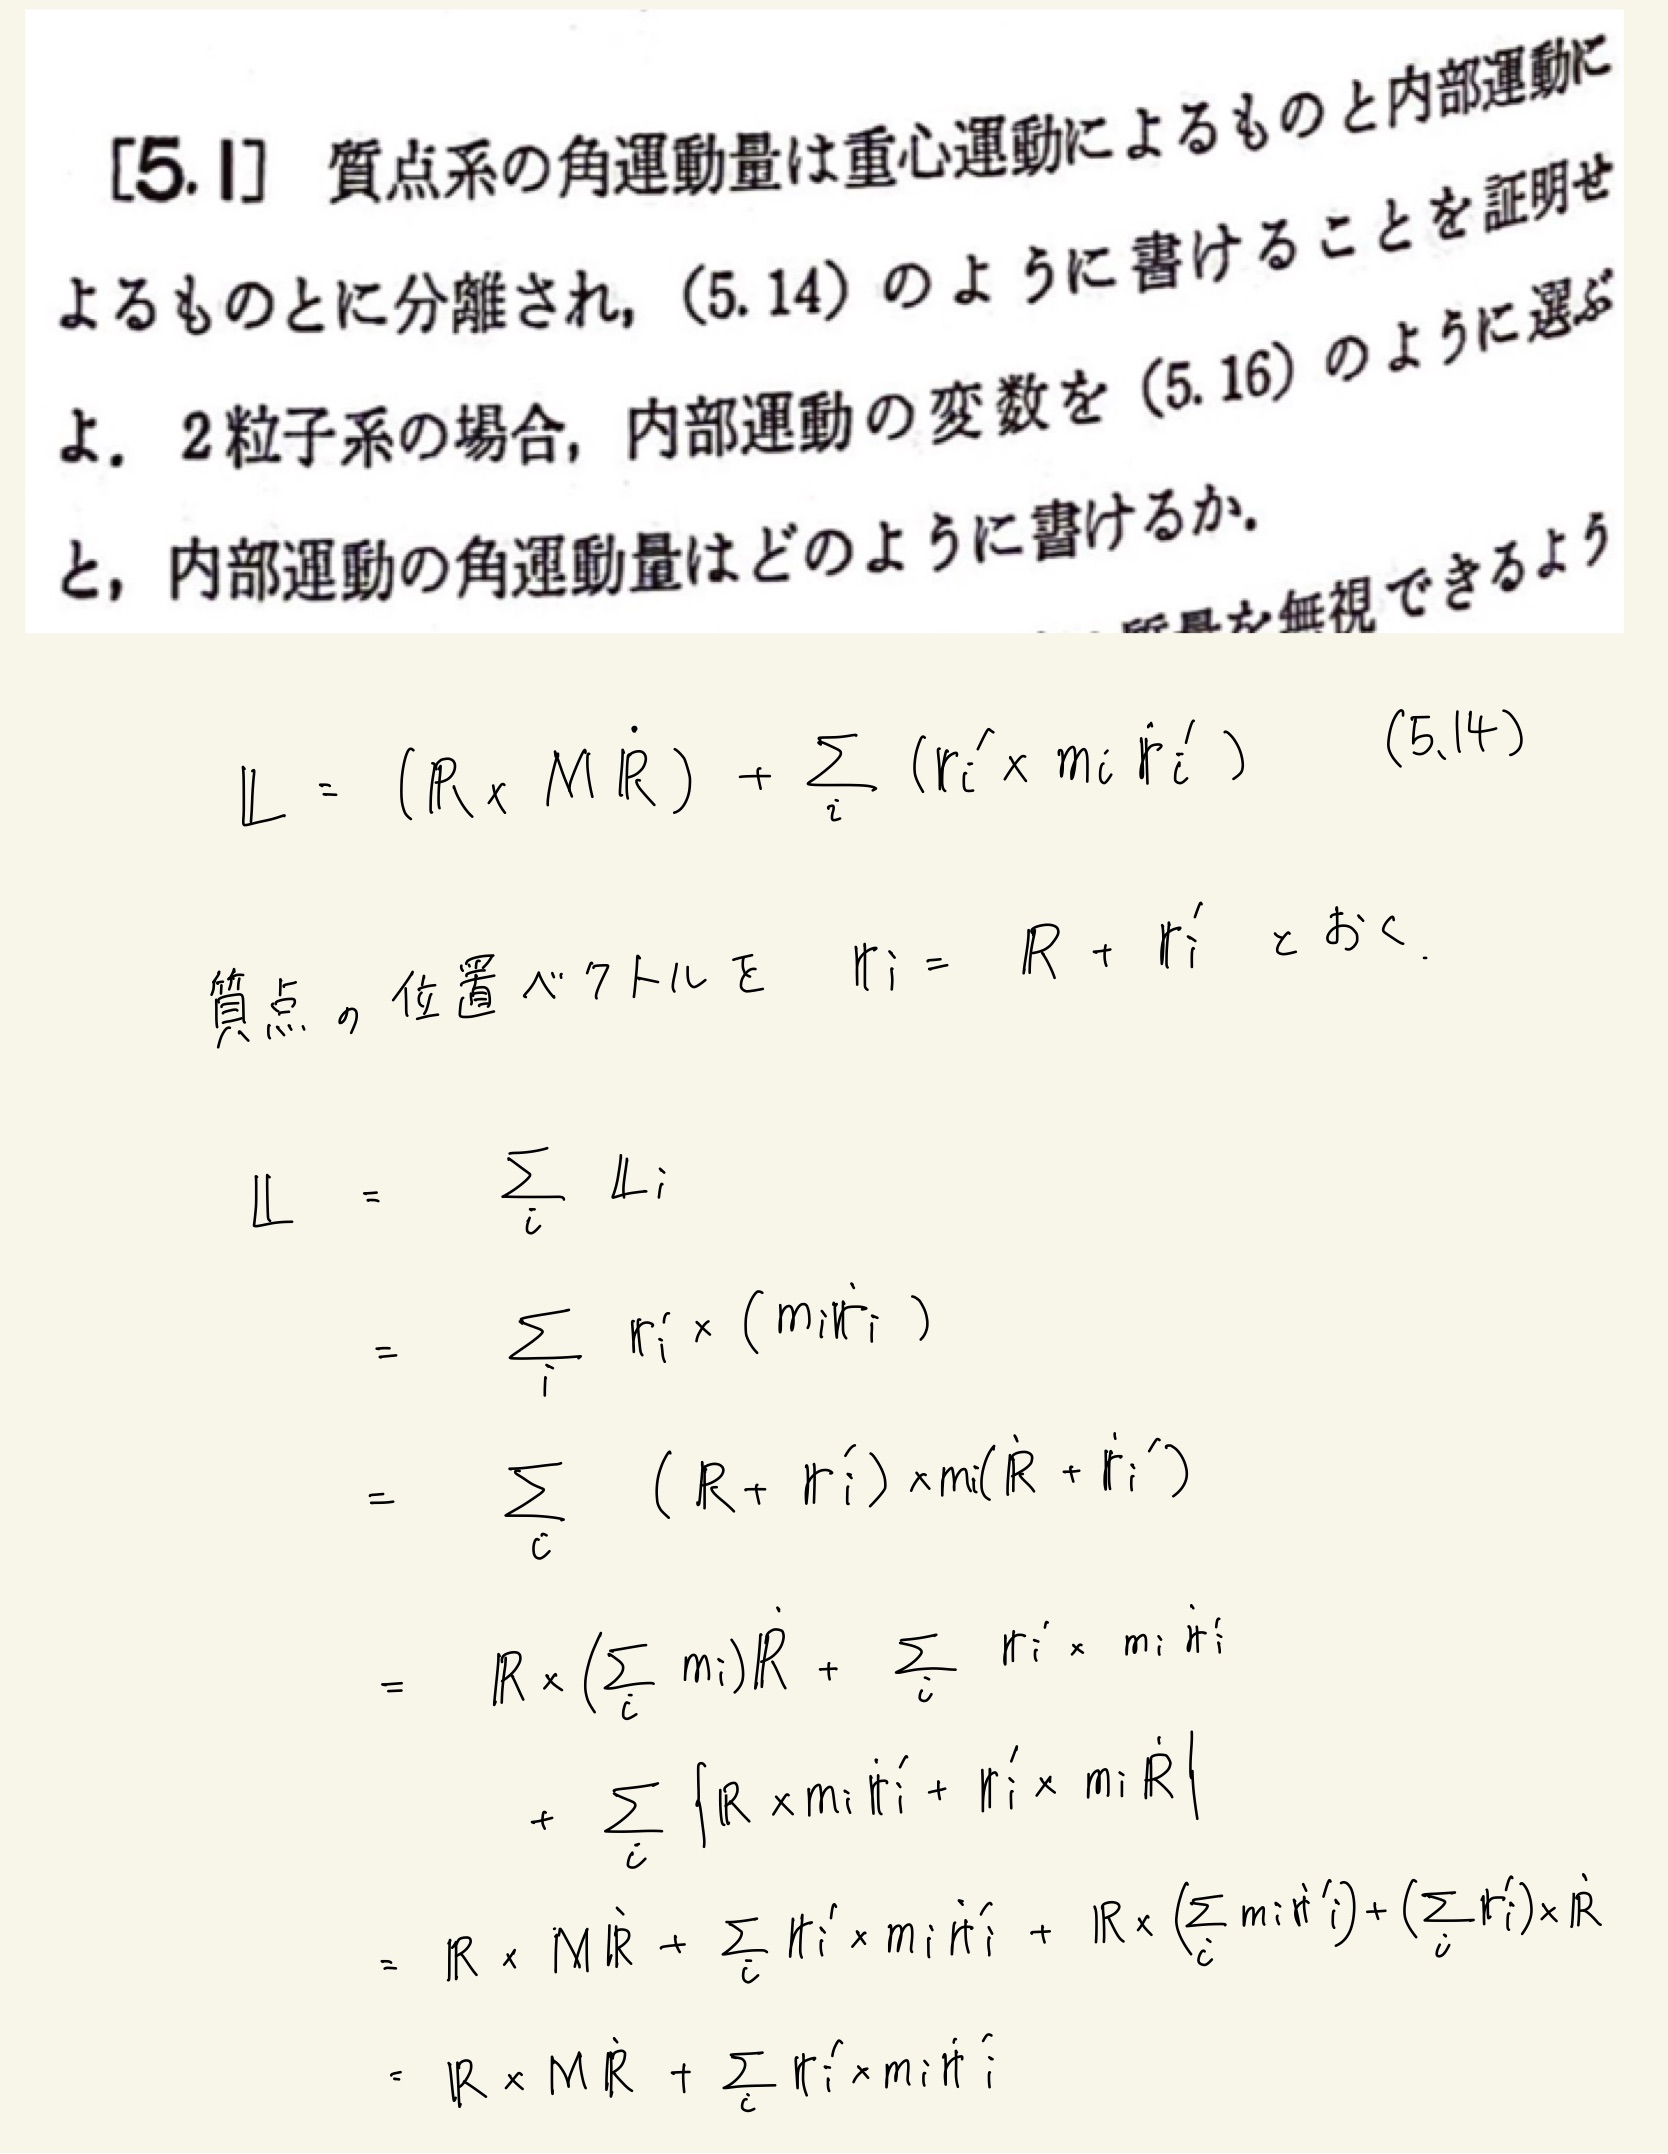 [5.1] 質点系の角運動量は重心運動によるものと内部運動に
よるものとに分離され，(5.14) のように書けることを証明せ
よ． 2粒子系の場合，内部運動の変数を (5.16) のように選ぶ
と，内部運動の角運動量はどのように書けるか．
を無視できるよう
𝕃 = (ℝ × MṘ) + Σ_i (𝕣i′ × mi 𝕣̇i′) (5.14)
質点の位置ベクトルを 𝕣i = ℝ + 𝕣i′ とおく.
𝕃 = Σ_i 𝕃i
= Σ_i 𝕣i′ × (mi𝕣̇i)
= Σ_i (ℝ + 𝕣i′) × mi(ℝ̇ + 𝕣̇i′)
= ℝ × (Σ_i mi)ℝ̇ + Σ_i 𝕣i′ × mi 𝕣̇i′
+ Σ_i {ℝ × mi 𝕣̇i′ + 𝕣i′ × mi ℝ̇}
= ℝ × Mℝ̇ + Σ_i 𝕣i′ × mi 𝕣̇i′ + ℝ × (Σ_i mi 𝕣̇′i) + (Σ_i 𝕣i′) × ℝ̇
= ℝ × Mℝ̇ + Σ_i 𝕣i′ × mi 𝕣̇i′